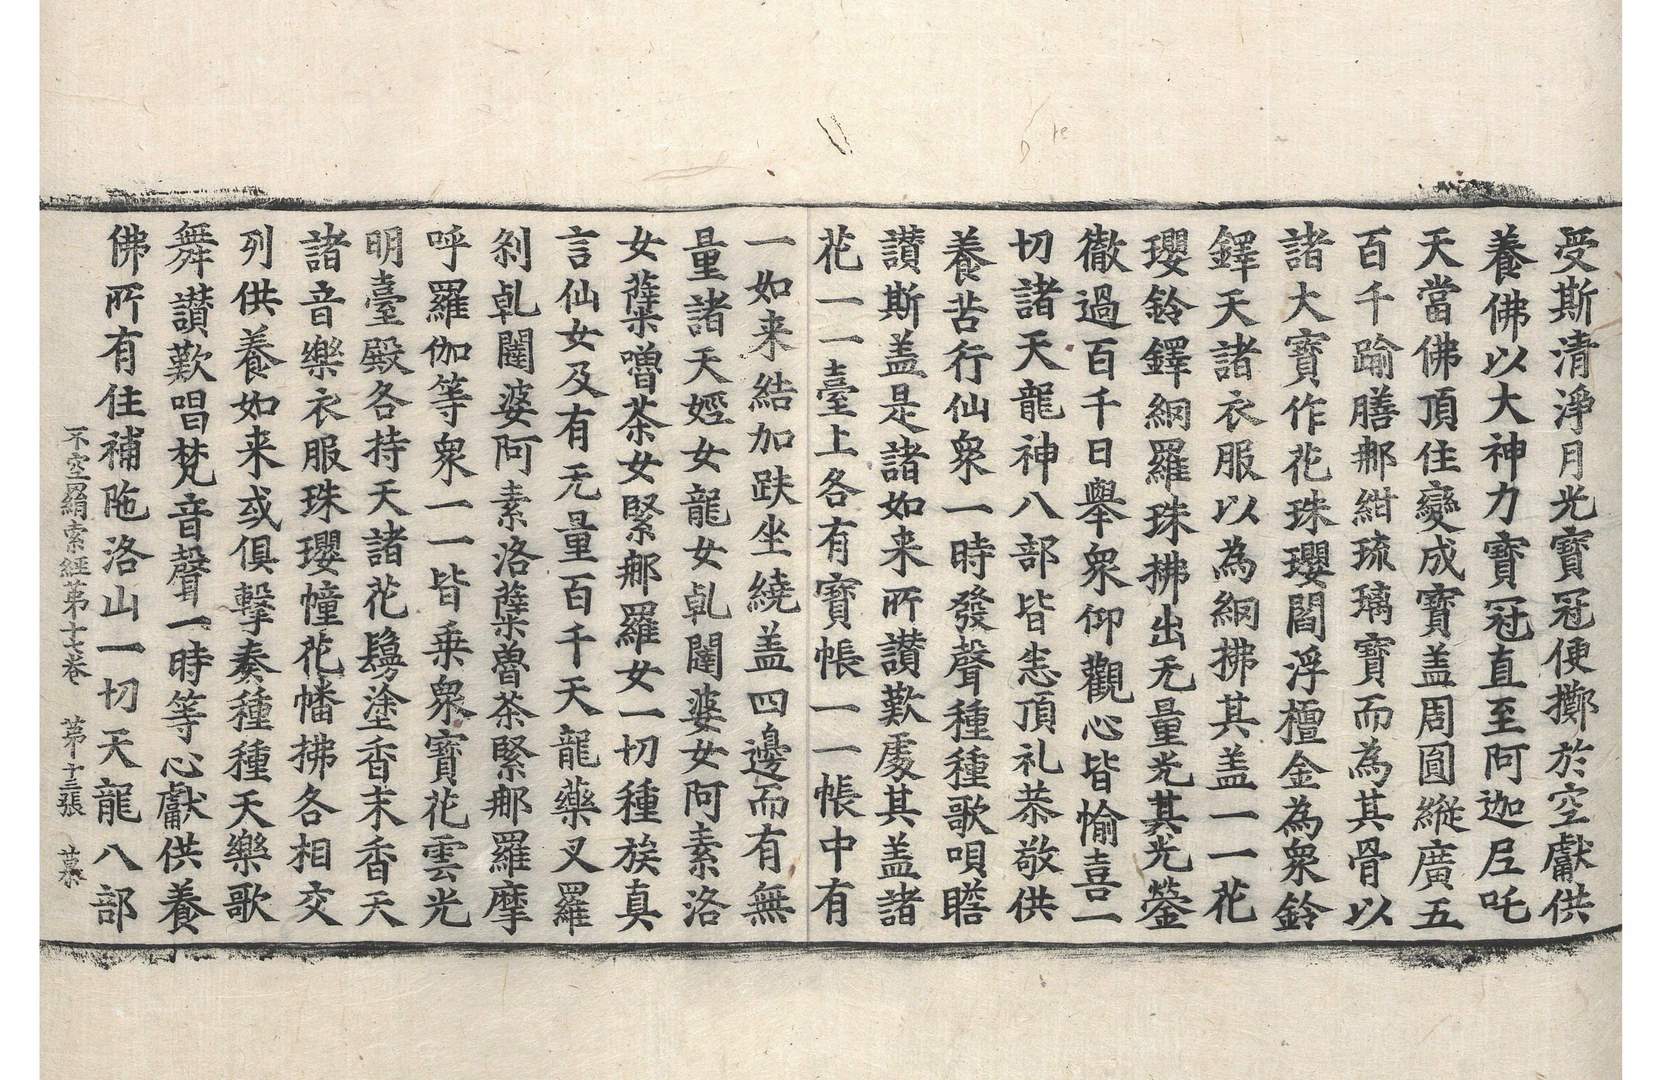 受斯清淨月光寶冠便擲於空獻供
養佛以大神力寶冠直至阿迦𡰱吒
天當佛頂住變成寶盖周圓縱廣五
百千踰膳那紺琉璃寶而為其骨以
諸大寶作花珠瓔閻浮檀金為眾鈴
鐸天諸衣服以為網拂其盖一一花
瓔鈴鐸網羅珠拂出无量光其光鎣
徹過百千日舉眾仰觀心皆愉喜一
切諸天龍神八部皆恚頂礼恭敬供
養苦行仙眾一時發聲種種歌唄瞻
讚斯盖是諸如来所讚歎處其盖諸
花一一臺上各有寶帳一一帳中有
一如来結加趺坐繞盖四邊而有無
量諸天婬女龍女乹闥婆女阿素洛
女蘖嚕茶女緊那羅女一切種族真
言仙女及有无量百千天龍藥叉羅
剎乹闥婆阿素洛蘖魯茶緊那羅摩
呼羅伽等眾一一皆乗眾寶花雲光
明臺殿各持天諸花鬘塗香末香天
諸音樂衣服珠瓔幢花幡拂各相交
列供養如来或俱擊奏種種天樂歌
舞讚歎唱梵音聲一時等心獻供養
佛所有住補陁洛山一切天龍八部
不空羂索經第十七卷　第十三張　慕